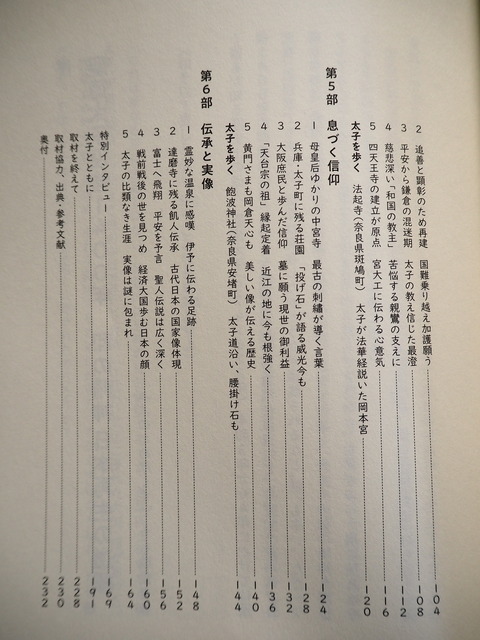 2 追善と顕彰のため再建 国難乗り越え加護願う……104
3 平安から鎌倉の混迷期 太子の教え信じた最澄……108
4 慈悲深い「和国の教主」 苦悩する親鸞の支えに……112
5 四天王寺の建立が原点 宮大工に伝わる心意気……116
太子を歩く 法起寺(奈良県斑鳩町) 太子が法華経説いた岡本宮……120
第5部 息づく信仰
1 母皇后ゆかりの中宮寺 最古の刺繡が導く言葉……124
2 兵庫・太子町に残る荘園 「投げ石」が語る威光今も……128
3 大阪庶民と歩んだ信仰 墓に願う現世の御利益……132
4 「天台宗の祖」縁起定着 近江の地に今も根強く……136
5 黄門さまも岡倉天心も 美しい像が伝える歴史……140
太子を歩く 飽波神社(奈良県安堵町) 太子道沿い、腰掛け石も……144
第6部 伝承と実像
1 霊妙な温泉に感嘆 伊予に伝わる足跡……148
2 達磨寺に残る飢人伝承 古代日本の国家像体現……152
3 富士へ飛翔 平安を予言 聖人伝説は広く深く……156
4 戦前戦後の世を見つめ 経済大国歩む日本の顔……160
5 太子の比類なき生涯 実像は謎に包まれ……164
特別インタビュー……169
太子とともに……191
取材を終えて……228
取材協力、出典・参考文献……230
奥付……232